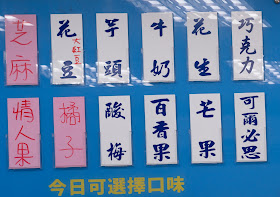 芝麻
花豆
大紅豆
芋頭
牛奶
花生
巧克力
情人果
橘子
酸梅
百香果
芒果
可爾必思
今日可選擇口味